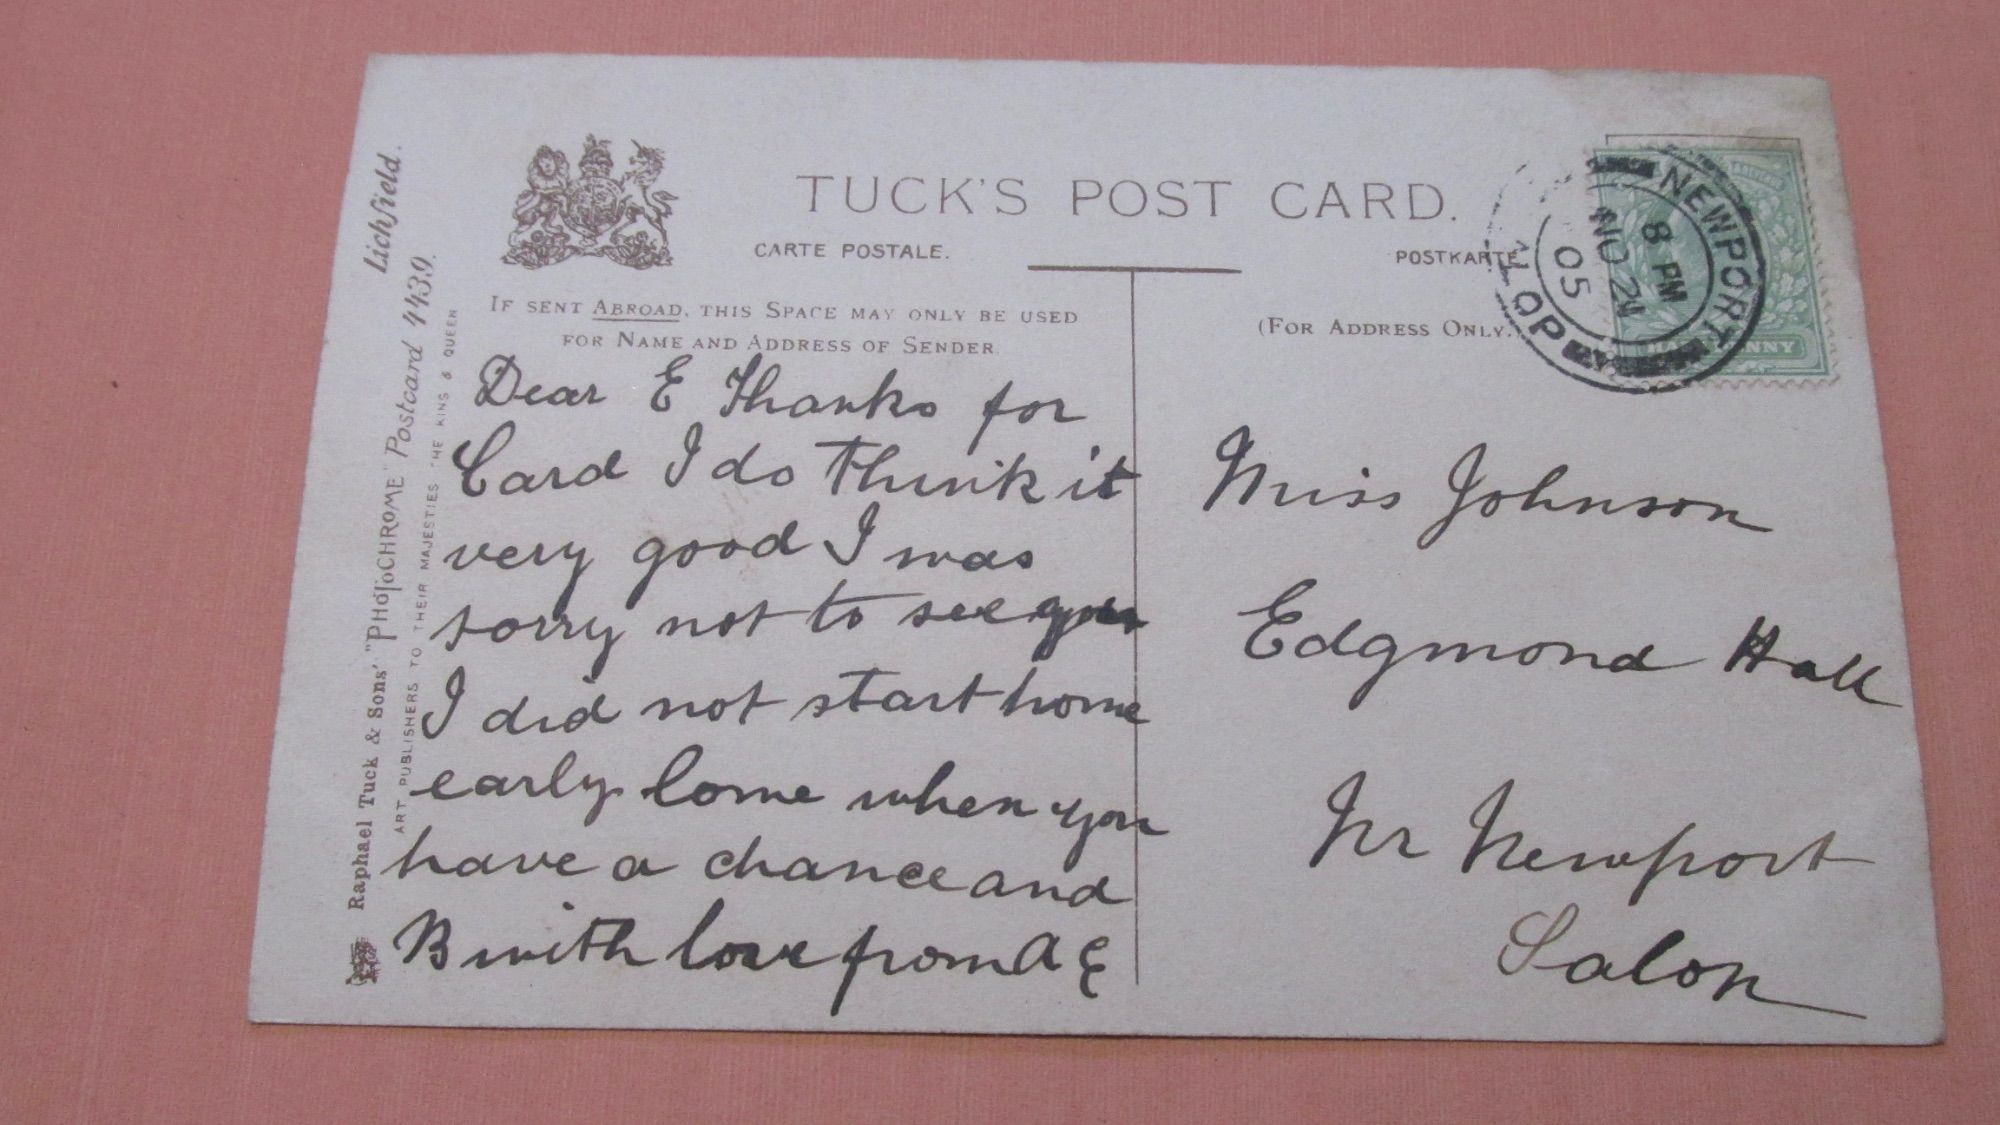 TUCK'S POST CARD.
CARTE POSTALE.
POSTKARTE
IF SENT ABROAD, THIS SPACE MAY ONLY BE USED
FOR NAME AND ADDRESS OF SENDER
(FOR ADDRESS ONLY.)
NEWPORT
8 PM
NO 2
05
SALOP
HALFPENNY
Lichfield.
Raphael Tuck & Sons' "PHOTOCHROME" Postcard 4439.
ART PUBLISHERS TO THEIR MAJESTIES THE KING & QUEEN
Dear E Thanks for
Card I do think it
very good I was
sorry not to see you
I did not start home
early Come when you
have a chance and
B with love from A E
Miss Johnson
Edgmond Hall
Nr Newport
Salop